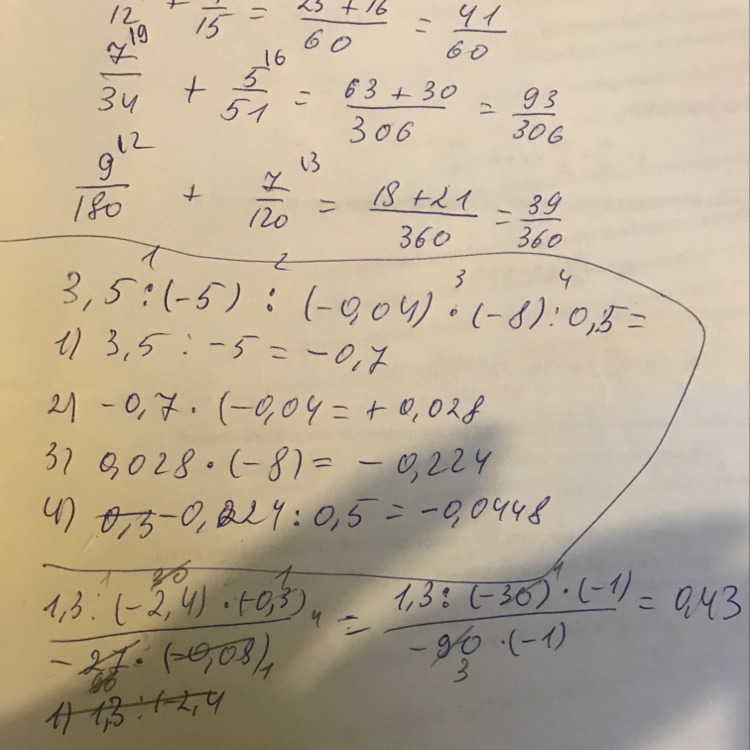 12 + 15 = 25 + 16 / 60 = 41 / 60
7 19 / 34 + 5 16 / 51 = 63 + 30 / 306 = 93 / 306
9 12 / 180 + 7 13 / 120 = 18 + 21 / 360 = 39 / 360
1 2 3 4
3,5 : (-5) : (-0,04) · (-8) : 0,5 =
1) 3,5 : -5 = -0,7
2) -0,7 · (-0,04 = + 0,028
3) 0,028 · (-8) = - 0,224
4) 0,3 -0,224 : 0,5 = -0,0448
1,3 : (-2,4) · (-0,3) / - 27 · (-0,08) = 1,3 : (-30) · (-1) / - 90 · (-1) = 0,43
1) 1,3 : (-2,4